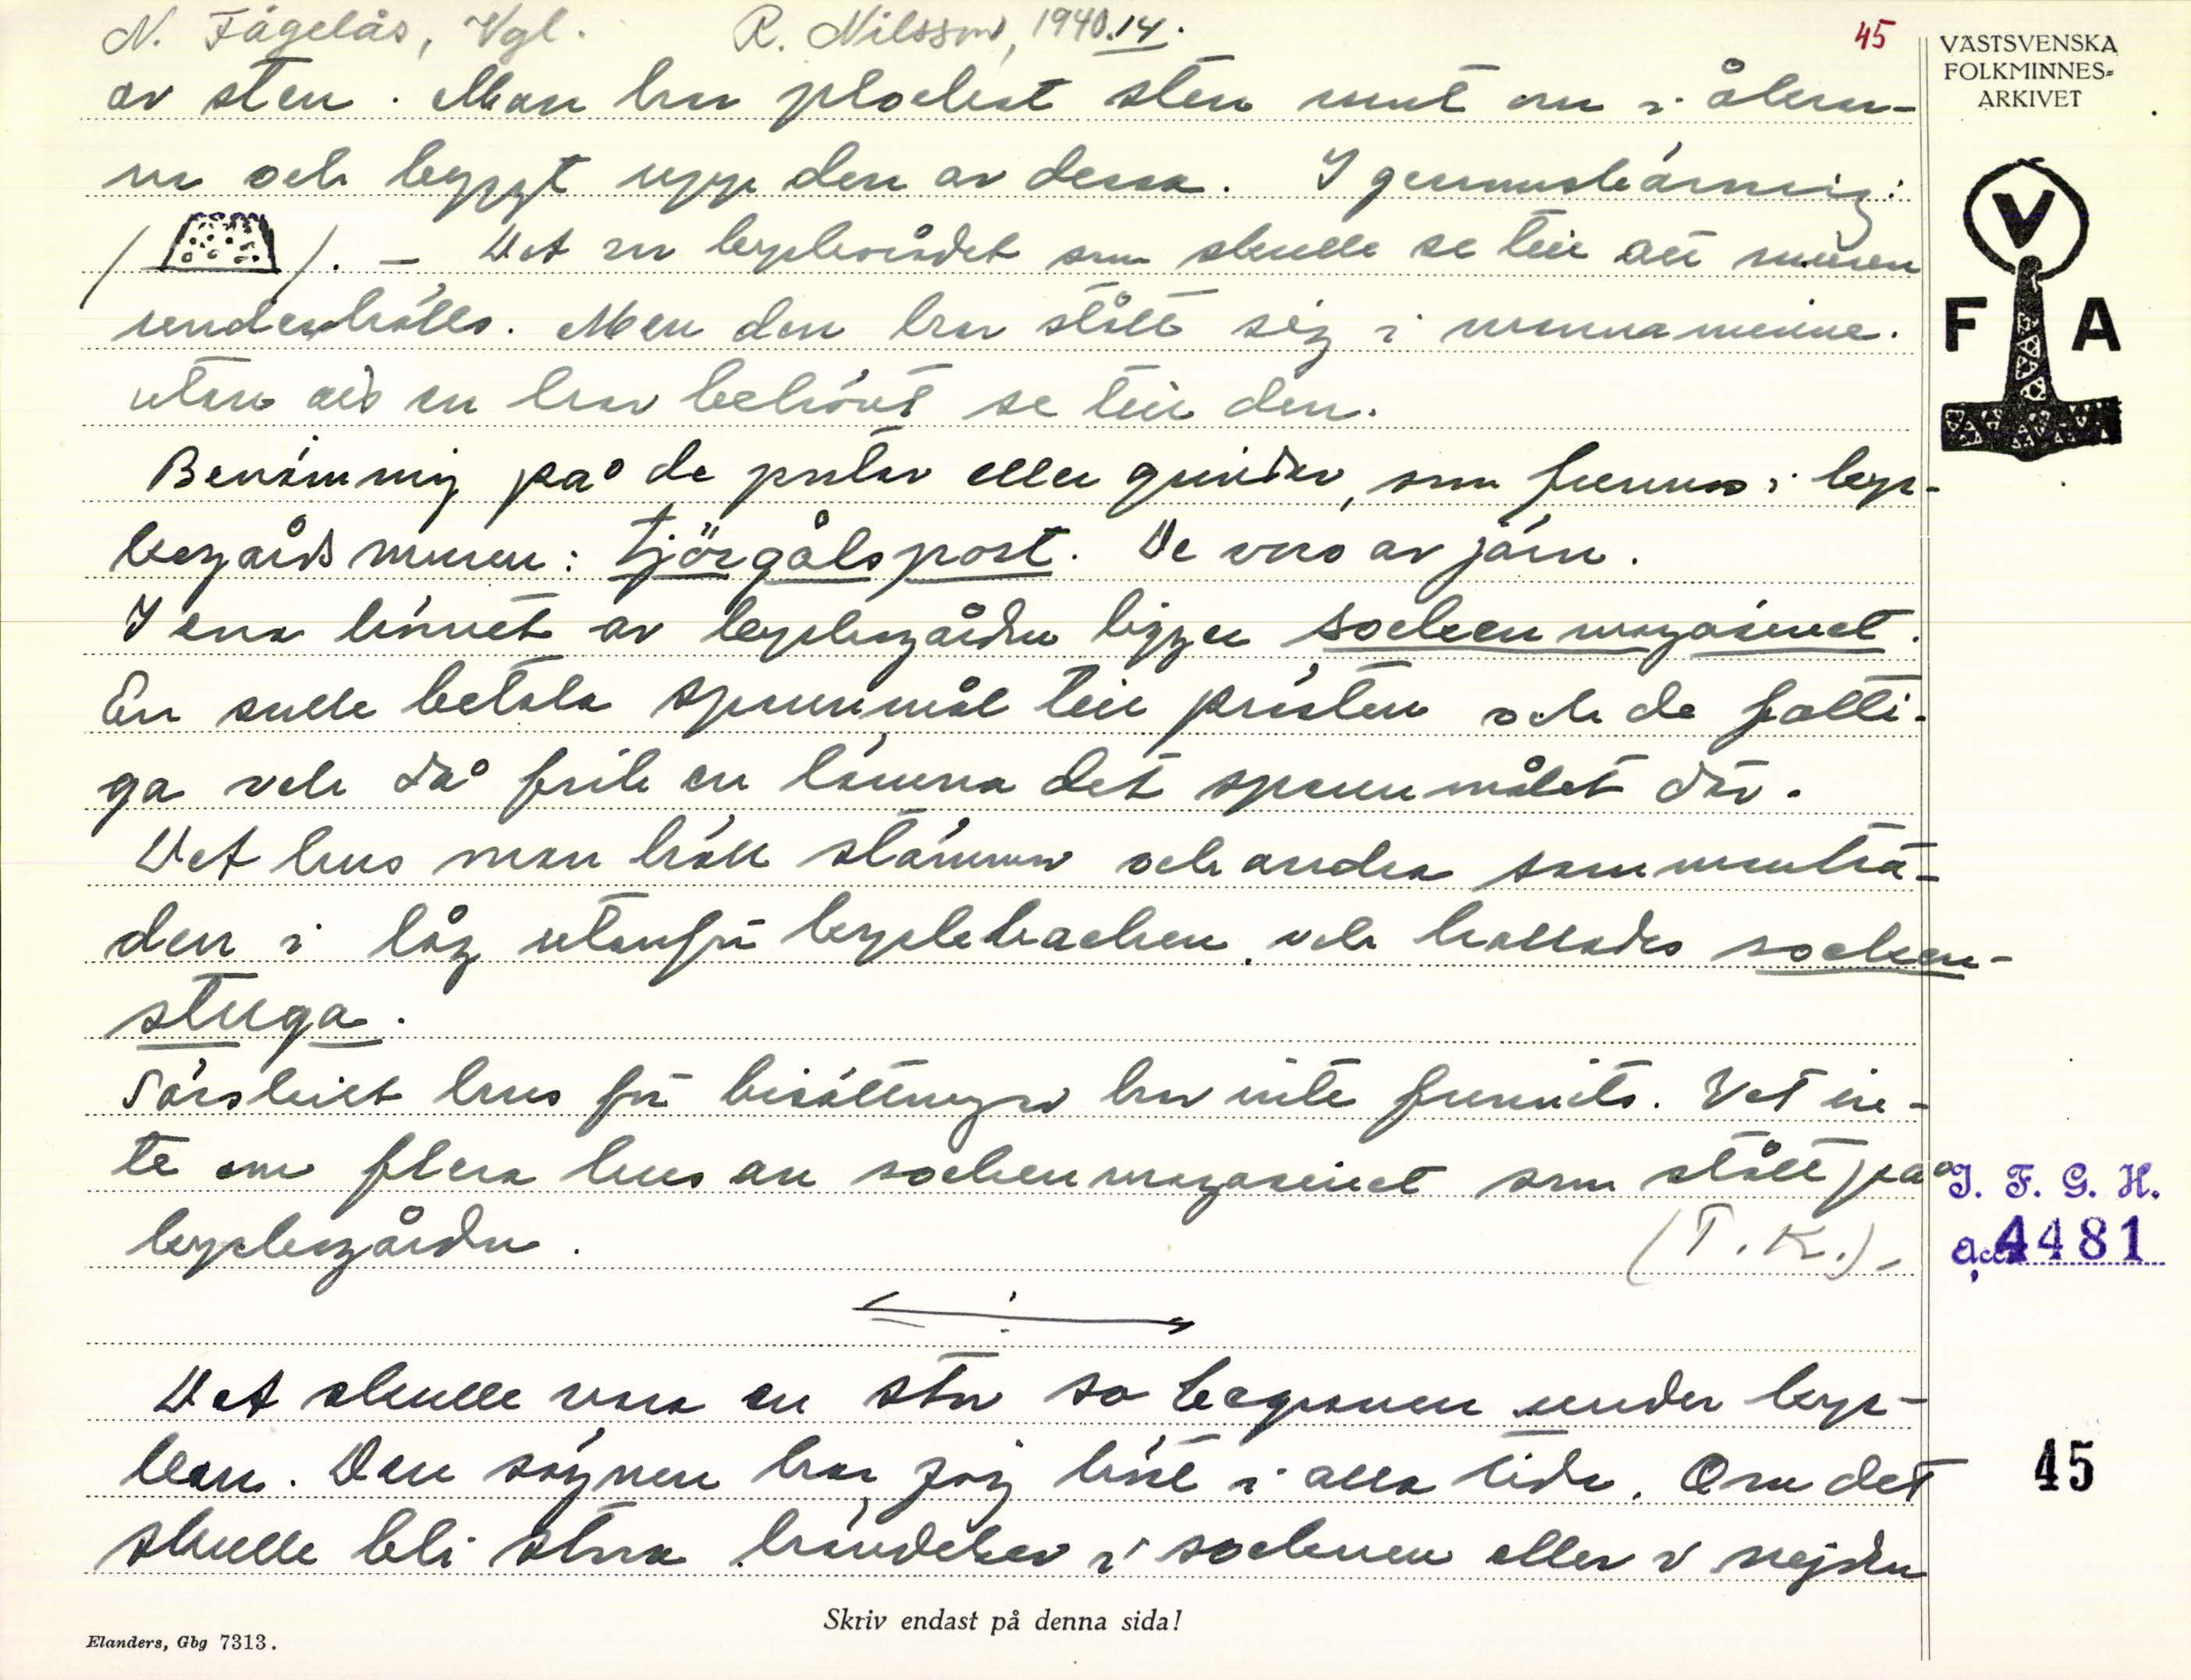 N. Fågelås, Vgl. R. Nilsson, 1940.14. 45
VÄSTSVENSKA
FOLKMINNES-
ARKIVET
V
F A
av sten. Man har plockat sten runt om i åkrar-
na och byggt upp den av dessa. I genomskärning:
( ). – Det är kyrkorådet som skulle se till att muren
underhölls. Men den har stått sig i mannaminne.
utan att en har behövt se till den.
Benämning på de portar eller grindar, som funnos i kyr-
kogårdsmuren: tjörgålspost. De voro av järn.
I ena hörnet av kyrkogården ligger sockenmagasinet.
En sulle betala spannmål till prästen och de fatti-
ga och då fick en lämna det spannmålet där.
Det hus man höll stämmor och andra sammanträ-
den i låg utanför kyrkbacken och kallades socken-
stuga.
Särskilt hus för bisättningar har inte funnits. Vet in-
te om flera hus än sockenmagasinet som stått på
kyrkogården. (T. K.).
I. F. G. H.
acc. 4481
Det skulle vara en stor so begraven under kyr-
kan. Den sägnen har jag hört i alla tider. Om det
45
skulle bli stora händelser i socknen eller i nejden
Skriv endast på denna sida!
Elanders, Gbg 7313.